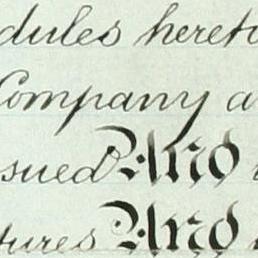 dules hereto
Company a
ssued And
tures And